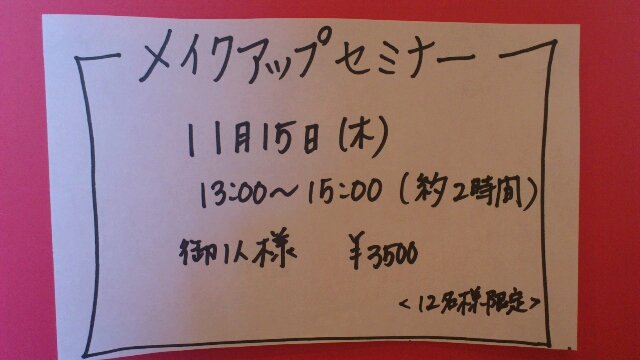 メイクアップセミナー
11月15日(木)
13:00～15:00(約2時間)
御1人様 ¥3500
<12名様限定>